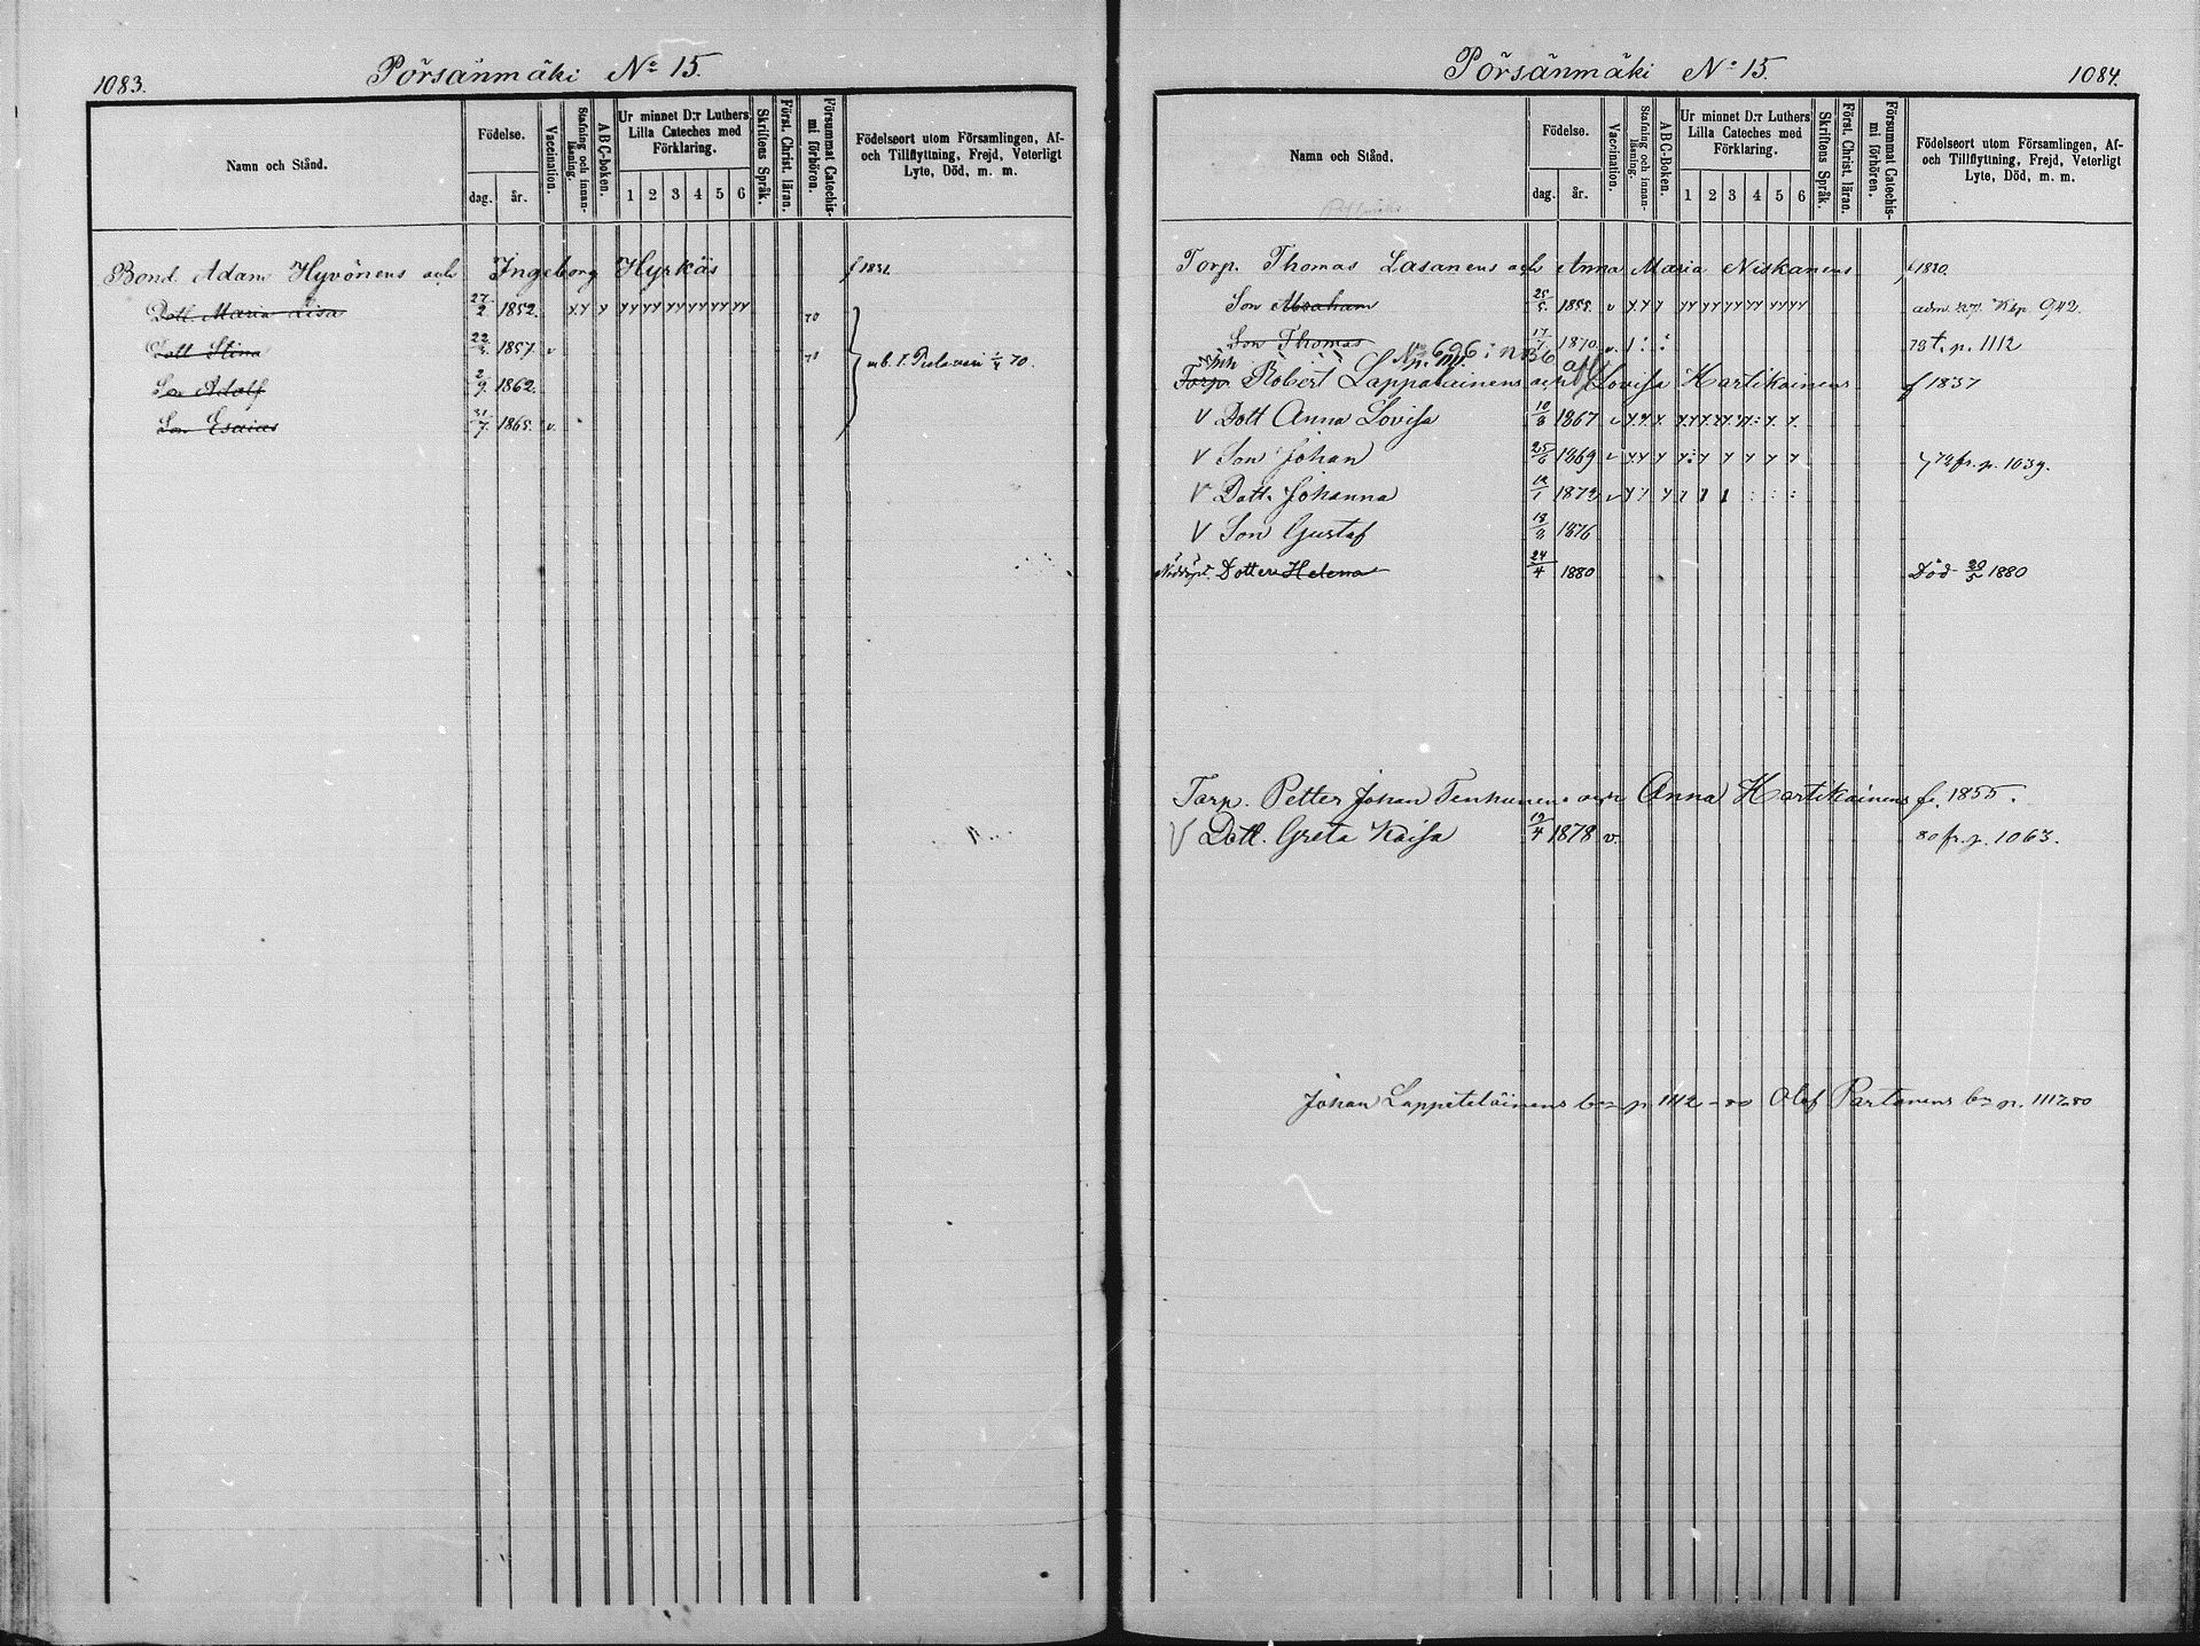 1083.
Pörsänmäki No 15.
Namn och Stånd.
Födelse.
dag. år.
Vaccination.
Stafning och innan-läsning.
ABC-boken.
Ur minnet D:r Luthers Lilla Cateches med Förklaring.
1 2 3 4 5 6
Skriftens Språk.
Först. Christ. läran.
Försummat Catechis-mi förhören.
Födelseort utom Församlingen, Af- och Tillflyttning, Frejd, Veterligt Lyte, Död, m. m.
Bond. Adam Hyvönens och Ingeborg Hyrkäs f 1831.
Dott. Maria Lisa 27/2 1852. 70
Dott Stina 22/2 1857. v 71
Son Adolf 2/9 1862.
Son Esaias 31/7 1865. v.
1084.
Pörsänmäki No 15.
Namn och Stånd.
Födelse.
dag. år.
Vaccination.
Stafning och innan-läsning.
ABC-boken.
Ur minnet D:r Luthers Lilla Cateches med Förklaring.
1 2 3 4 5 6
Skriftens Språk.
Först. Christ. läran.
Försummat Catechis-mi förhören.
Födelseort utom Församlingen, Af- och Tillflyttning, Frejd, Veterligt Lyte, Död, m. m.
Torp. Thomas Lasanens och Anna Maria Niskanens f 1830.
Son Abraham 25/5. 1855. v 942.
Son Thomas 17/7 1870. v. 73 t. p. 1112
Torp. Robert Lappalainens och Lovisa Hartikainens f 1837
V Dott Anna Lovisa 10/8 1867 v
V Son Johan 25/6 1869 v 74 fr. p. 1039.
V Dott. Johanna 12/1 1872 v
V Son Gustaf 18/8 1876
Dotter Helena 24/4 1880 Död 20/5 1880
Torp. Petter Johan Tenhunens och Anna Hartikainens f. 1855.
V Dott. Greta Kaisa 19/4 1878 v. 80 fr. p. 1063.
Johan Lappeteläinens p 1112-80 Olof Partanens p. 1112-80